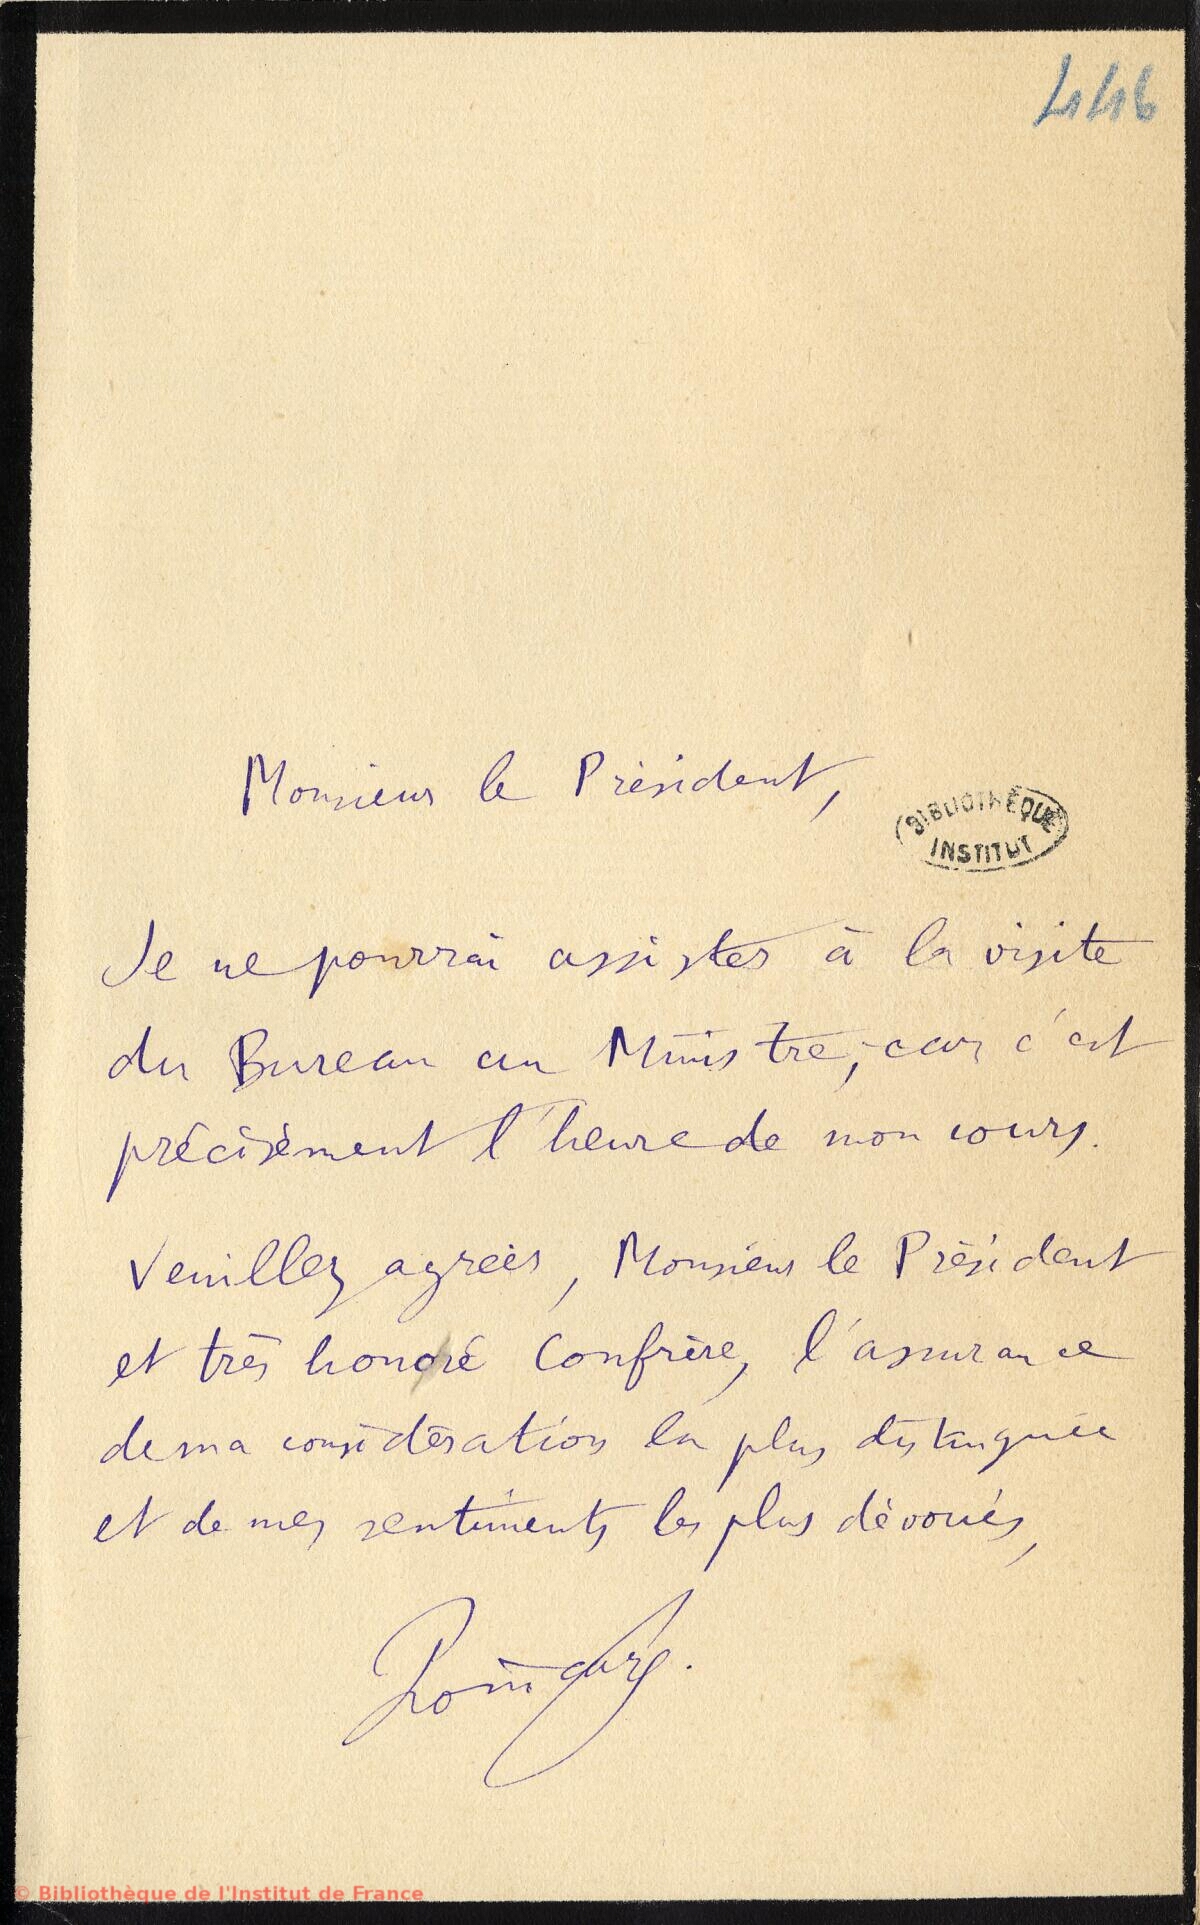 446
Monsieur le Président,
BIBLIOTHÈQUE
INSTITUT
Je ne pourrai assister à la visite
du Bureau au Ministre, car c'est
précisément l'heure de mon cours.
Veuillez agréer, Monsieur le Président
et très honoré Confrère, l'assurance
de ma considération la plus distinguée
et de mes sentiments les plus dévoués,
Poincaré.
© Bibliothèque de l'Institut de France